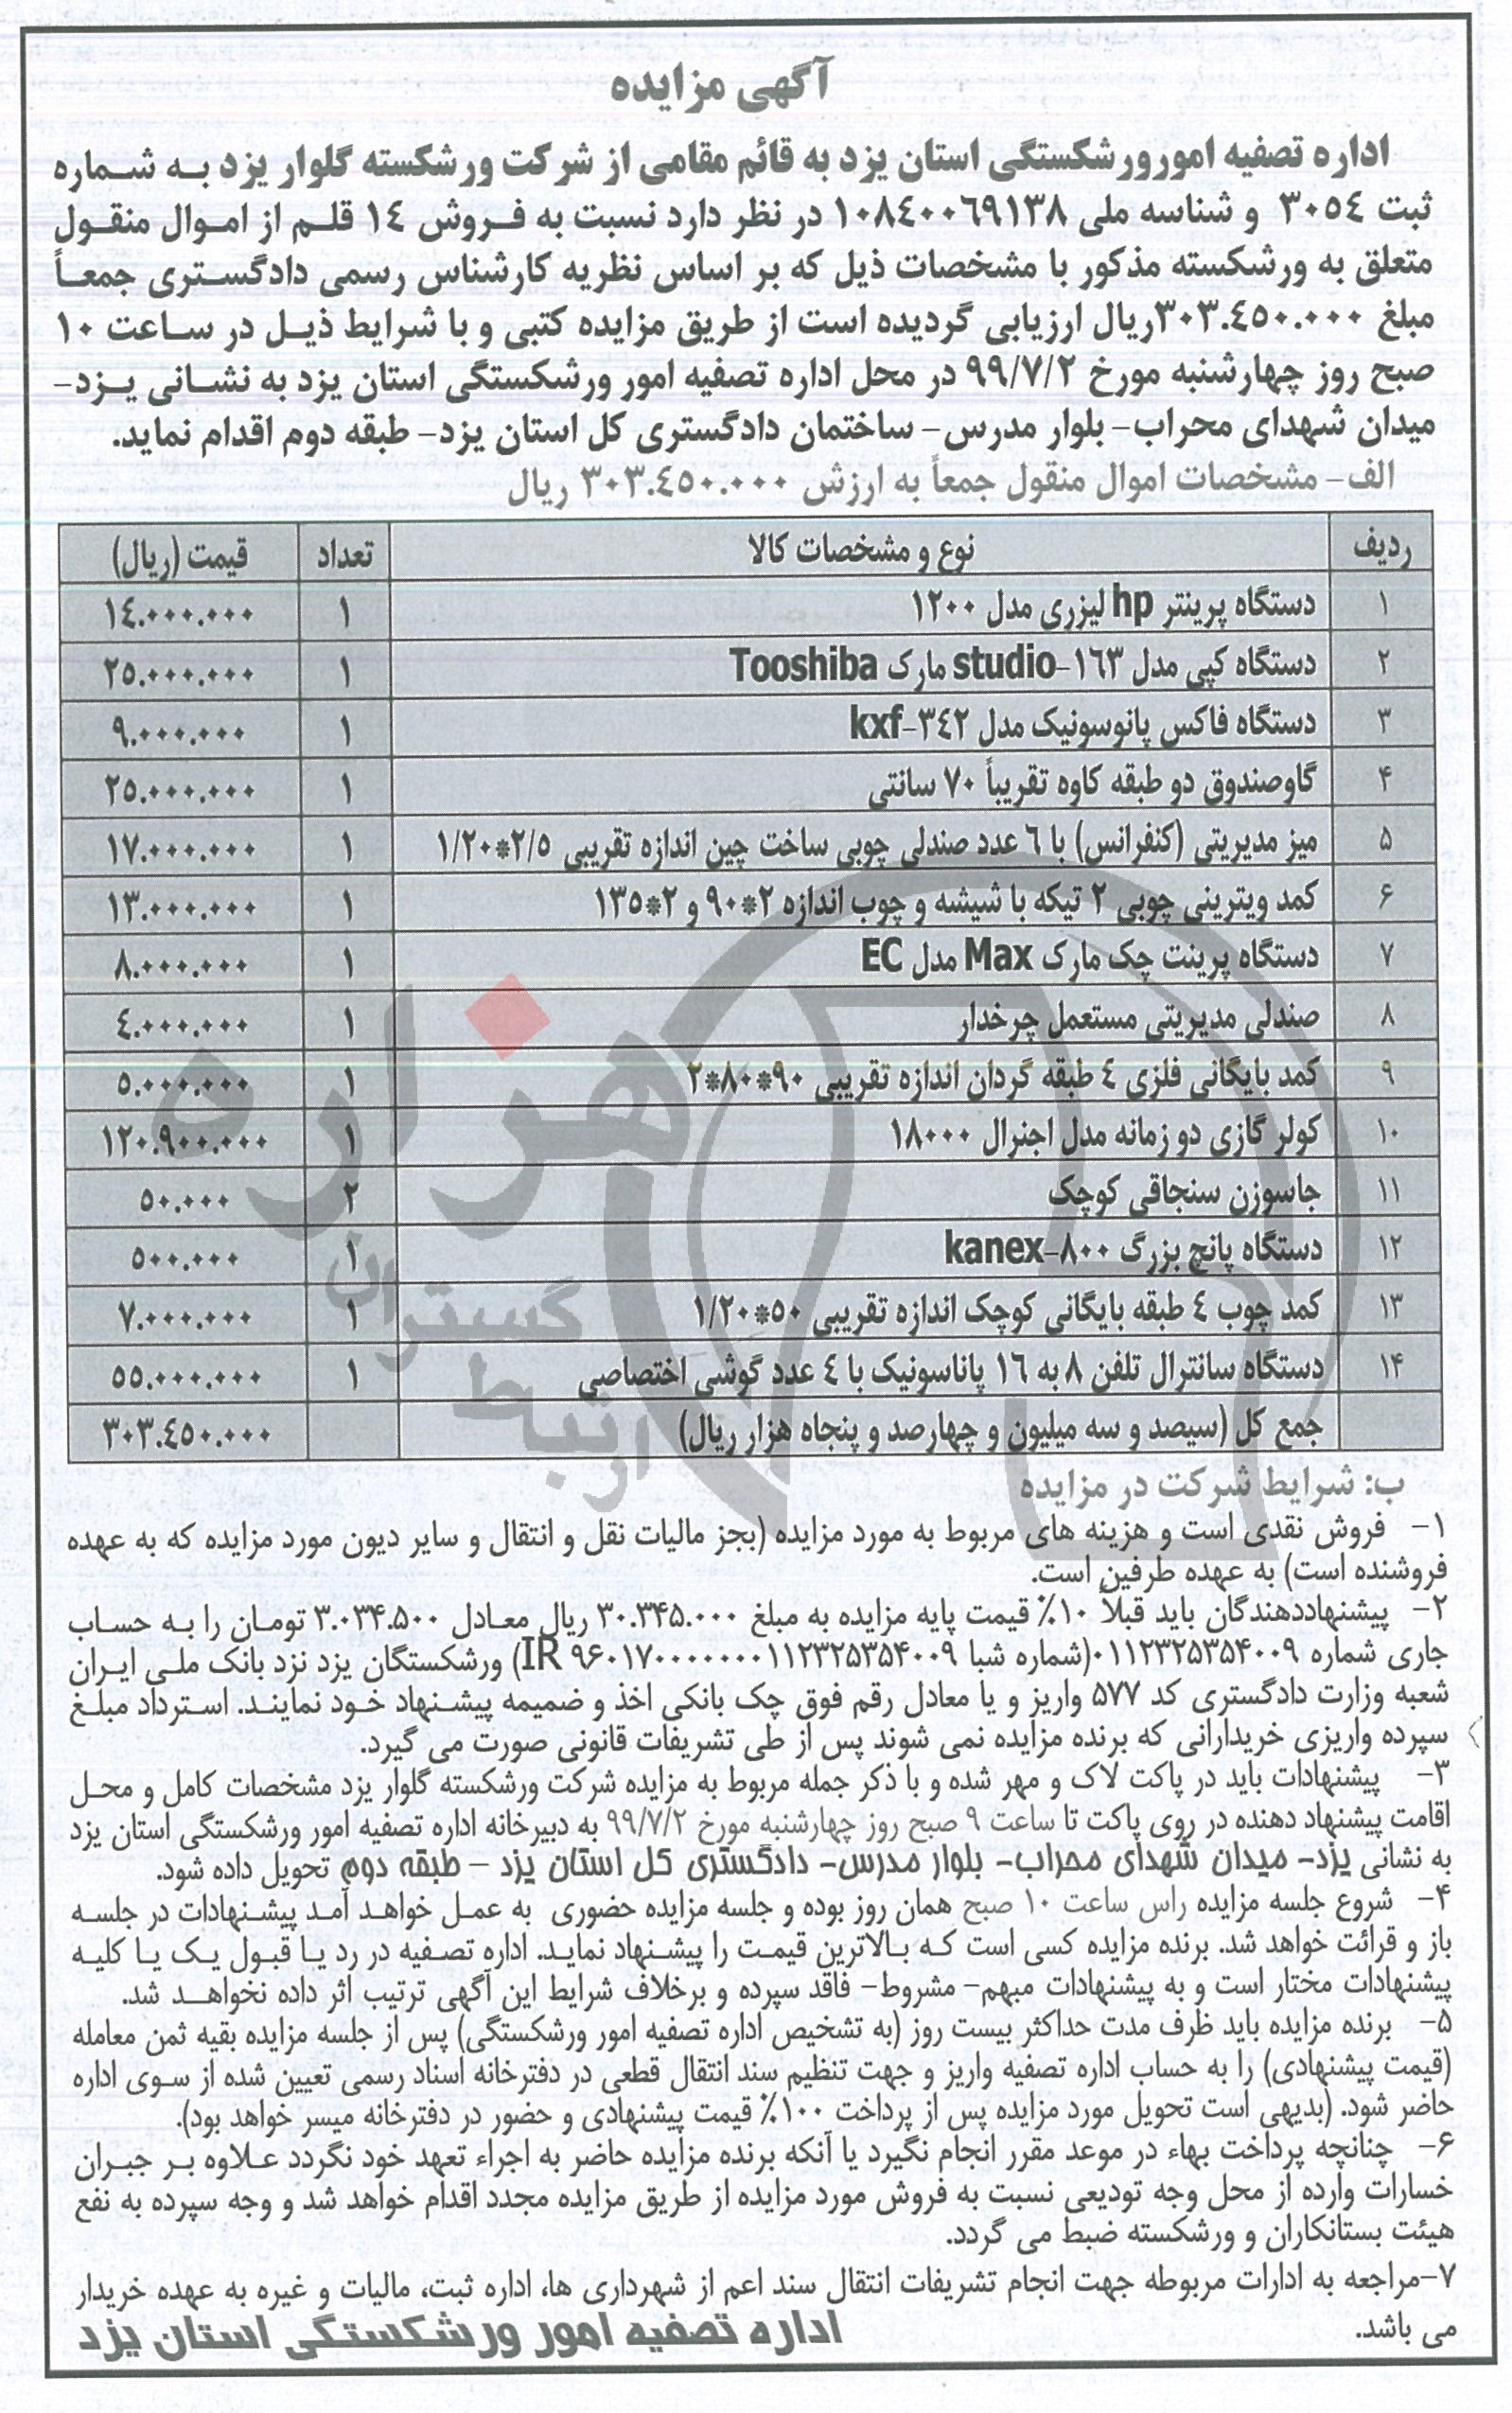 آگهی مزایده
اداره تصفیه امورورشکستگی استان یزد به قائم مقامی از شرکت ورشکسته گلوار یزد به شماره
ثبت ٣٠٥٤ و شناسه ملی ١٠٨٤٠٠٦٩١٣٨ در نظر دارد نسبت به فروش ١٤ قلم از اموال منقول
متعلق به ورشکسته مذکور با مشخصات ذیل که بر اساس نظریه کارشناس رسمی دادگستری جمعاً
مبلغ ٣٠٣.٤٥٠.٠٠٠ریال ارزیابی گردیده است از طریق مزایده کتبی و با شرایط ذیل در ساعت ١٠
صبح روز چهارشنبه مورخ ٩٩/٧/٢ در محل اداره تصفیه امور ورشکستگی استان یزد به نشانی یزد-
میدان شهدای محراب- بلوار مدرس- ساختمان دادگستری کل استان یزد- طبقه دوم اقدام نماید.
الف- مشخصات اموال منقول جمعاً به ارزش ٣٠٣.٤٥٠.٠٠٠ ریال
ردیف نوع و مشخصات کالا تعداد قیمت (ریال)
١ دستگاه پرینتر hp لیزری مدل ١٢٠٠ ١ ١٤.٠٠٠.٠٠٠
٢ دستگاه کپی مدل studio-١٦٣ مارک Tooshiba ١ ٢٥.٠٠٠.٠٠٠
٣ دستگاه فاکس پانوسونیک مدل kxf-٣٤٢ ١ ٩.٠٠٠.٠٠٠
۴ گاوصندوق دو طبقه کاوه تقریباً ٧٠ سانتی ١ ٢٥.٠٠٠.٠٠٠
۵ میز مدیریتی (کنفرانس) با ٦ عدد صندلی چوبی ساخت چین اندازه تقریبی ٢/٥*١/٢٠ ١ ١٧.٠٠٠.٠٠٠
۶ کمد ویترینی چوبی ٢ تیکه با شیشه و چوب اندازه ٢*٩٠ و ٢*١٣٥ ١ ١٣.٠٠٠.٠٠٠
٧ دستگاه پرینت چک مارک Max مدل EC ١ ٨.٠٠٠.٠٠٠
٨ صندلی مدیریتی مستعمل چرخدار ١ ٤.٠٠٠.٠٠٠
٩ کمد بایگانی فلزی ٤ طبقه گردان اندازه تقریبی ٩٠*٨٠*٢ ١ ٥.٠٠٠.٠٠٠
١٠ کولر گازی دو زمانه مدل اجنرال ١٨٠٠٠ ١ ١٢٠.٩٠٠.٠٠٠
١١ جاسوزن سنجاقی کوچک ٢ ٥٠.٠٠٠
١٢ دستگاه پانچ بزرگ kanex-٨٠٠ ١ ٥٠٠.٠٠٠
١٣ کمد چوب ٤ طبقه بایگانی کوچک اندازه تقریبی ٥٠*١/٢٠ ١ ٧.٠٠٠.٠٠٠
١۴ دستگاه سانترال تلفن ٨ به ١٦ پاناسونیک با ٤ عدد گوشی اختصاصی ١ ٥٥.٠٠٠.٠٠٠
جمع کل (سیصد و سه میلیون و چهارصد و پنجاه هزار ریال) ٣٠٣.٤٥٠.٠٠٠
ب: شرایط شرکت در مزایده
١- فروش نقدی است و هزینه های مربوط به مورد مزایده (بجز مالیات نقل و انتقال و سایر دیون مورد مزایده که به عهده
فروشنده است) به عهده طرفین است.
٢- پیشنهاددهندگان باید قبلاً ١٠٪ قیمت پایه مزایده به مبلغ ٣٠.٣۴۵.٠٠٠ ریال معادل ٣.٠٣۴.۵٠٠ تومان را به حساب
جاری شماره ٠١١٢٣٢۵٣۵۴٠٠٩(شماره شبا IR ٩۶٠١٧٠٠٠٠٠٠٠١١٢٣٢۵٣۵۴٠٠٩) ورشکستگان یزد نزد بانک ملی ایران
شعبه وزارت دادگستری کد ۵٧٧ واریز و یا معادل رقم فوق چک بانکی اخذ و ضمیمه پیشنهاد خود نمایند. استرداد مبلغ
سپرده واریزی خریدارانی که برنده مزایده نمی شوند پس از طی تشریفات قانونی صورت می گیرد.
٣- پیشنهادات باید در پاکت لاک و مهر شده و با ذکر جمله مربوط به مزایده شرکت ورشکسته گلوار یزد مشخصات کامل و محل
اقامت پیشنهاد دهنده در روی پاکت تا ساعت ٩ صبح روز چهارشنبه مورخ ٩٩/٧/٢ به دبیرخانه اداره تصفیه امور ورشکستگی استان یزد
به نشانی یزد- میدان شهدای محراب- بلوار مدرس- دادگستری کل استان یزد - طبقه دوم تحویل داده شود.
۴- شروع جلسه مزایده راس ساعت ١٠ صبح همان روز بوده و جلسه مزایده حضوری به عمل خواهد آمد پیشنهادات در جلسه
باز و قرائت خواهد شد. برنده مزایده کسی است که بالاترین قیمت را پیشنهاد نماید. اداره تصفیه در رد یا قبول یک یا کلیه
پیشنهادات مختار است و به پیشنهادات مبهم- مشروط- فاقد سپرده و برخلاف شرایط این آگهی ترتیب اثر داده نخواهد شد.
۵- برنده مزایده باید ظرف مدت حداکثر بیست روز (به تشخیص اداره تصفیه امور ورشکستگی) پس از جلسه مزایده بقیه ثمن معامله
(قیمت پیشنهادی) را به حساب اداره تصفیه واریز و جهت تنظیم سند انتقال قطعی در دفترخانه اسناد رسمی تعیین شده از سوی اداره
حاضر شود. (بدیهی است تحویل مورد مزایده پس از پرداخت ١٠٠٪ قیمت پیشنهادی و حضور در دفترخانه میسر خواهد بود).
۶- چنانچه پرداخت بهاء در موعد مقرر انجام نگیرد یا آنکه برنده مزایده حاضر به اجراء تعهد خود نگردد علاوه بر جبران
خسارات وارده از محل وجه تودیعی نسبت به فروش مورد مزایده از طریق مزایده مجدد اقدام خواهد شد و وجه سپرده به نفع
هیئت بستانکاران و ورشکسته ضبط می گردد.
٧-مراجعه به ادارات مربوطه جهت انجام تشریفات انتقال سند اعم از شهرداری ها، اداره ثبت، مالیات و غیره به عهده خریدار
می باشد.
اداره تصفیه امور ورشکستگی استان یزد
هزاره
گستران
ارتباط